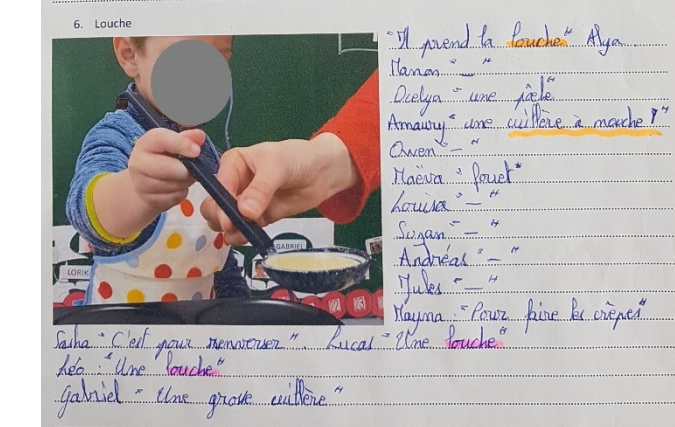 6. Louche
"Il prend la louche" Alya
Manon " — "
Dcelya " une pôele"
Amaury " une cuillère à mouche !"
Owen " — "
Maëva " fouet"
Louisa " — "
Suzan " — "
Andréas " — "
Jules " — "
Mayna : "Pour faire les crêpes"
GABRIEL
LORIK
Sasha " C'est pour renverser". Lucas " Une louche"
Léo : "Une louche"
Gabriel " Une grosse cuillère"